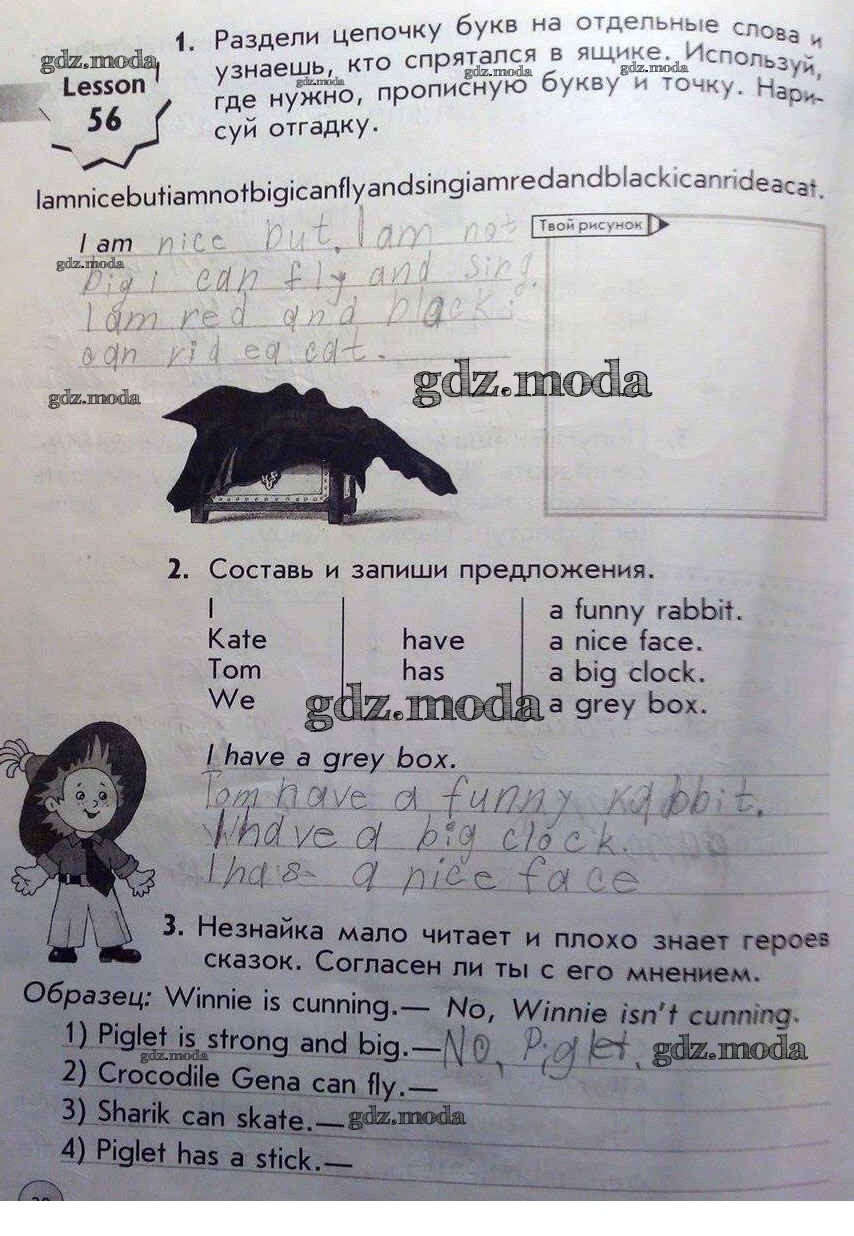 gdz.moda
Lesson
56
1. Раздели цепочку букв на отдельные слова и
узнаешь, кто спрятался в ящике. Используй,
gdz.moda
gdz.moda
gdz.moda
где нужно, прописную букву и точку. Нари-
суй отгадку.
Iamnicebutiamnotbigicanflyandsingiamredandblackicanrideacat.
I am nice but. I am not
Твой рисунок
gdz.moda
big i can fly and sing.
I am red and black i
can rid ea cat.
gdz.moda
gdz.moda
2. Составь и запиши предложения.
I a funny rabbit.
Kate have a nice face.
Tom has a big clock.
We a grey box.
gdz.moda
I have a grey box.
Tom have a funny rabbit.
Whave a big clock.
I has a nice face
3. Незнайка мало читает и плохо знает героев
сказок. Согласен ли ты с его мнением.
Образец: Winnie is cunning.— No, Winnie isn't cunning.
1) Piglet is strong and big.— No, Piglet.
gdz.moda
gdz.moda
2) Crocodile Gena can fly.—
3) Sharik can skate.—
gdz.moda
4) Piglet has a stick.—